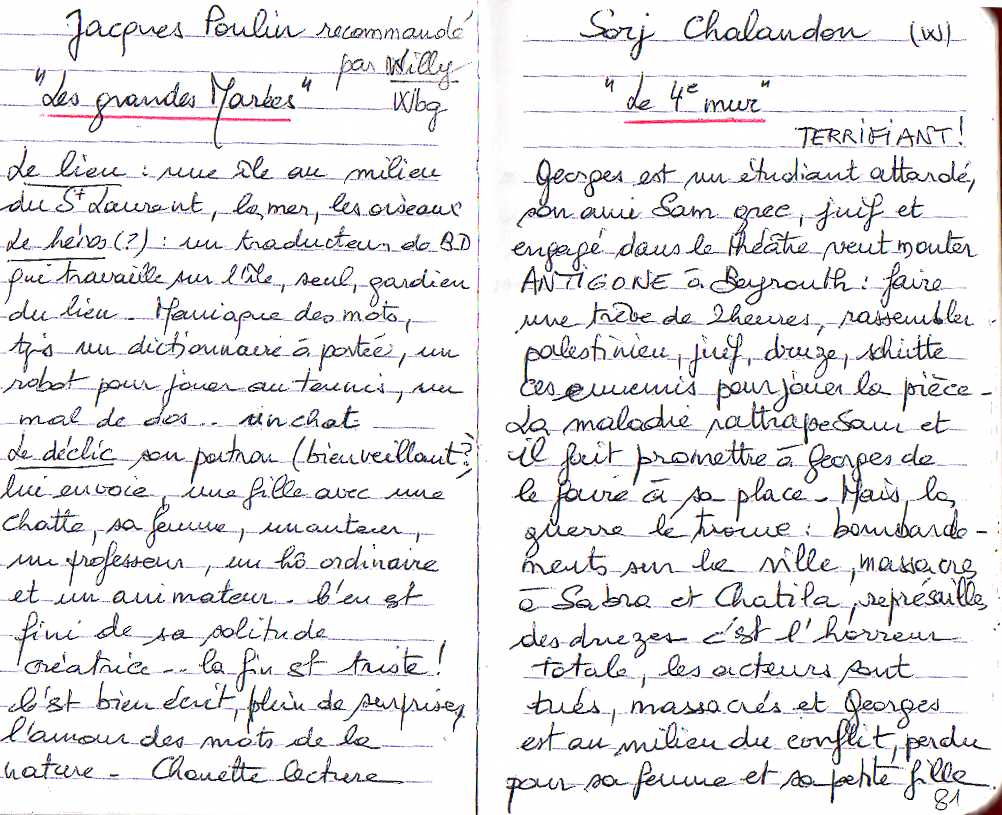 Jacques Poulin recommandé
par Willy
"Les grandes Marées" Wbg
Le lieu : une île au milieu
du St Laurent, la mer, les oiseaux
Le héros (?) : un traducteur de BD
qui travaille sur l'île, seul, gardien
du lieu - Maniaque des mots,
tjs un dictionnaire à portée, un
robot pour jouer au tennis, un
mal de dos .. un chat
Le déclic son patron (bienveillant?)
lui envoie, une fille avec une
chatte, sa femme, un auteur,
un professeur, un hô ordinaire
et un animateur - C'en est
fini de sa solitude
créatrice... la fin est triste!
C'est bien écrit, plein de surprises,
l'amour des mots de la
nature - Chouette lecture
Sorj Chalandon (W)
"Le 4e mur"
TERRIFIANT!
Georges est un étudiant attardé,
son ami Sam grec, juif et
engagé dans le théâtre veut monter
ANTIGONE à Beyrouth : faire
une trève de 2 heures, rassembler
palestinien, juif, druze, schiite
ces ennemis pour jouer la pièce -
La maladie rattrape Sam et
il fait promettre à Georges de
le faire à sa place - Mais la
guerre le trouve : bombarde-
ments sur la ville, massacres
à Sabra et Chatila, représailles
des druzes c'est l'horreur
totale, les acteurs sont
tués, massacrés et Georges
est au milieu du conflit, perdu
pour sa femme et sa petite fille
81